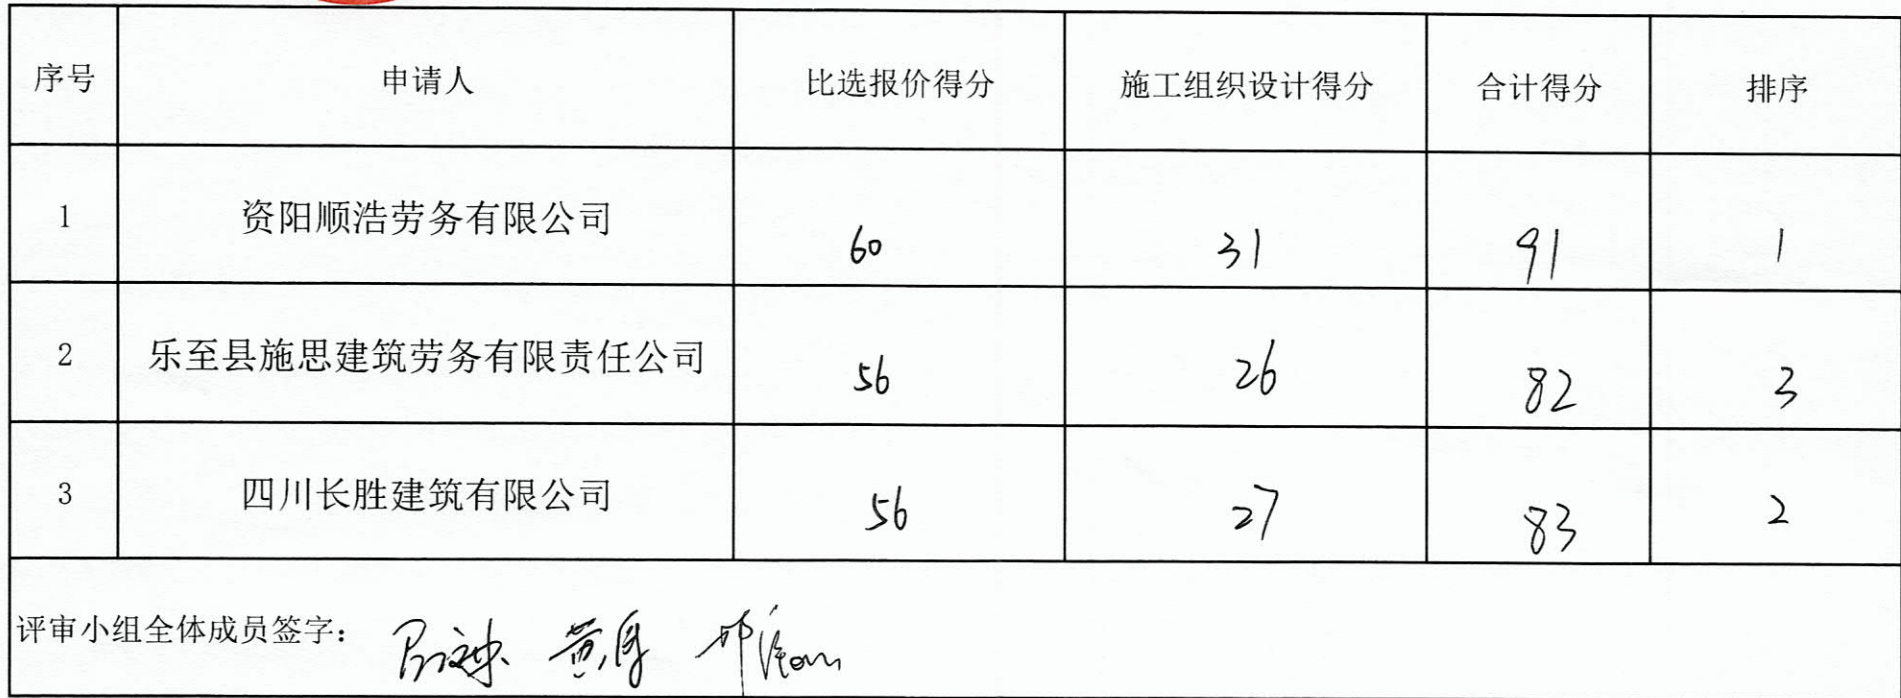 序号 申请人 比选报价得分 施工组织设计得分 合计得分 排序
1 资阳顺浩劳务有限公司 60 31 91 1
2 乐至县施思建筑劳务有限责任公司 56 26 82 3
3 四川长胜建筑有限公司 56 27 83 2
评审小组全体成员签字：